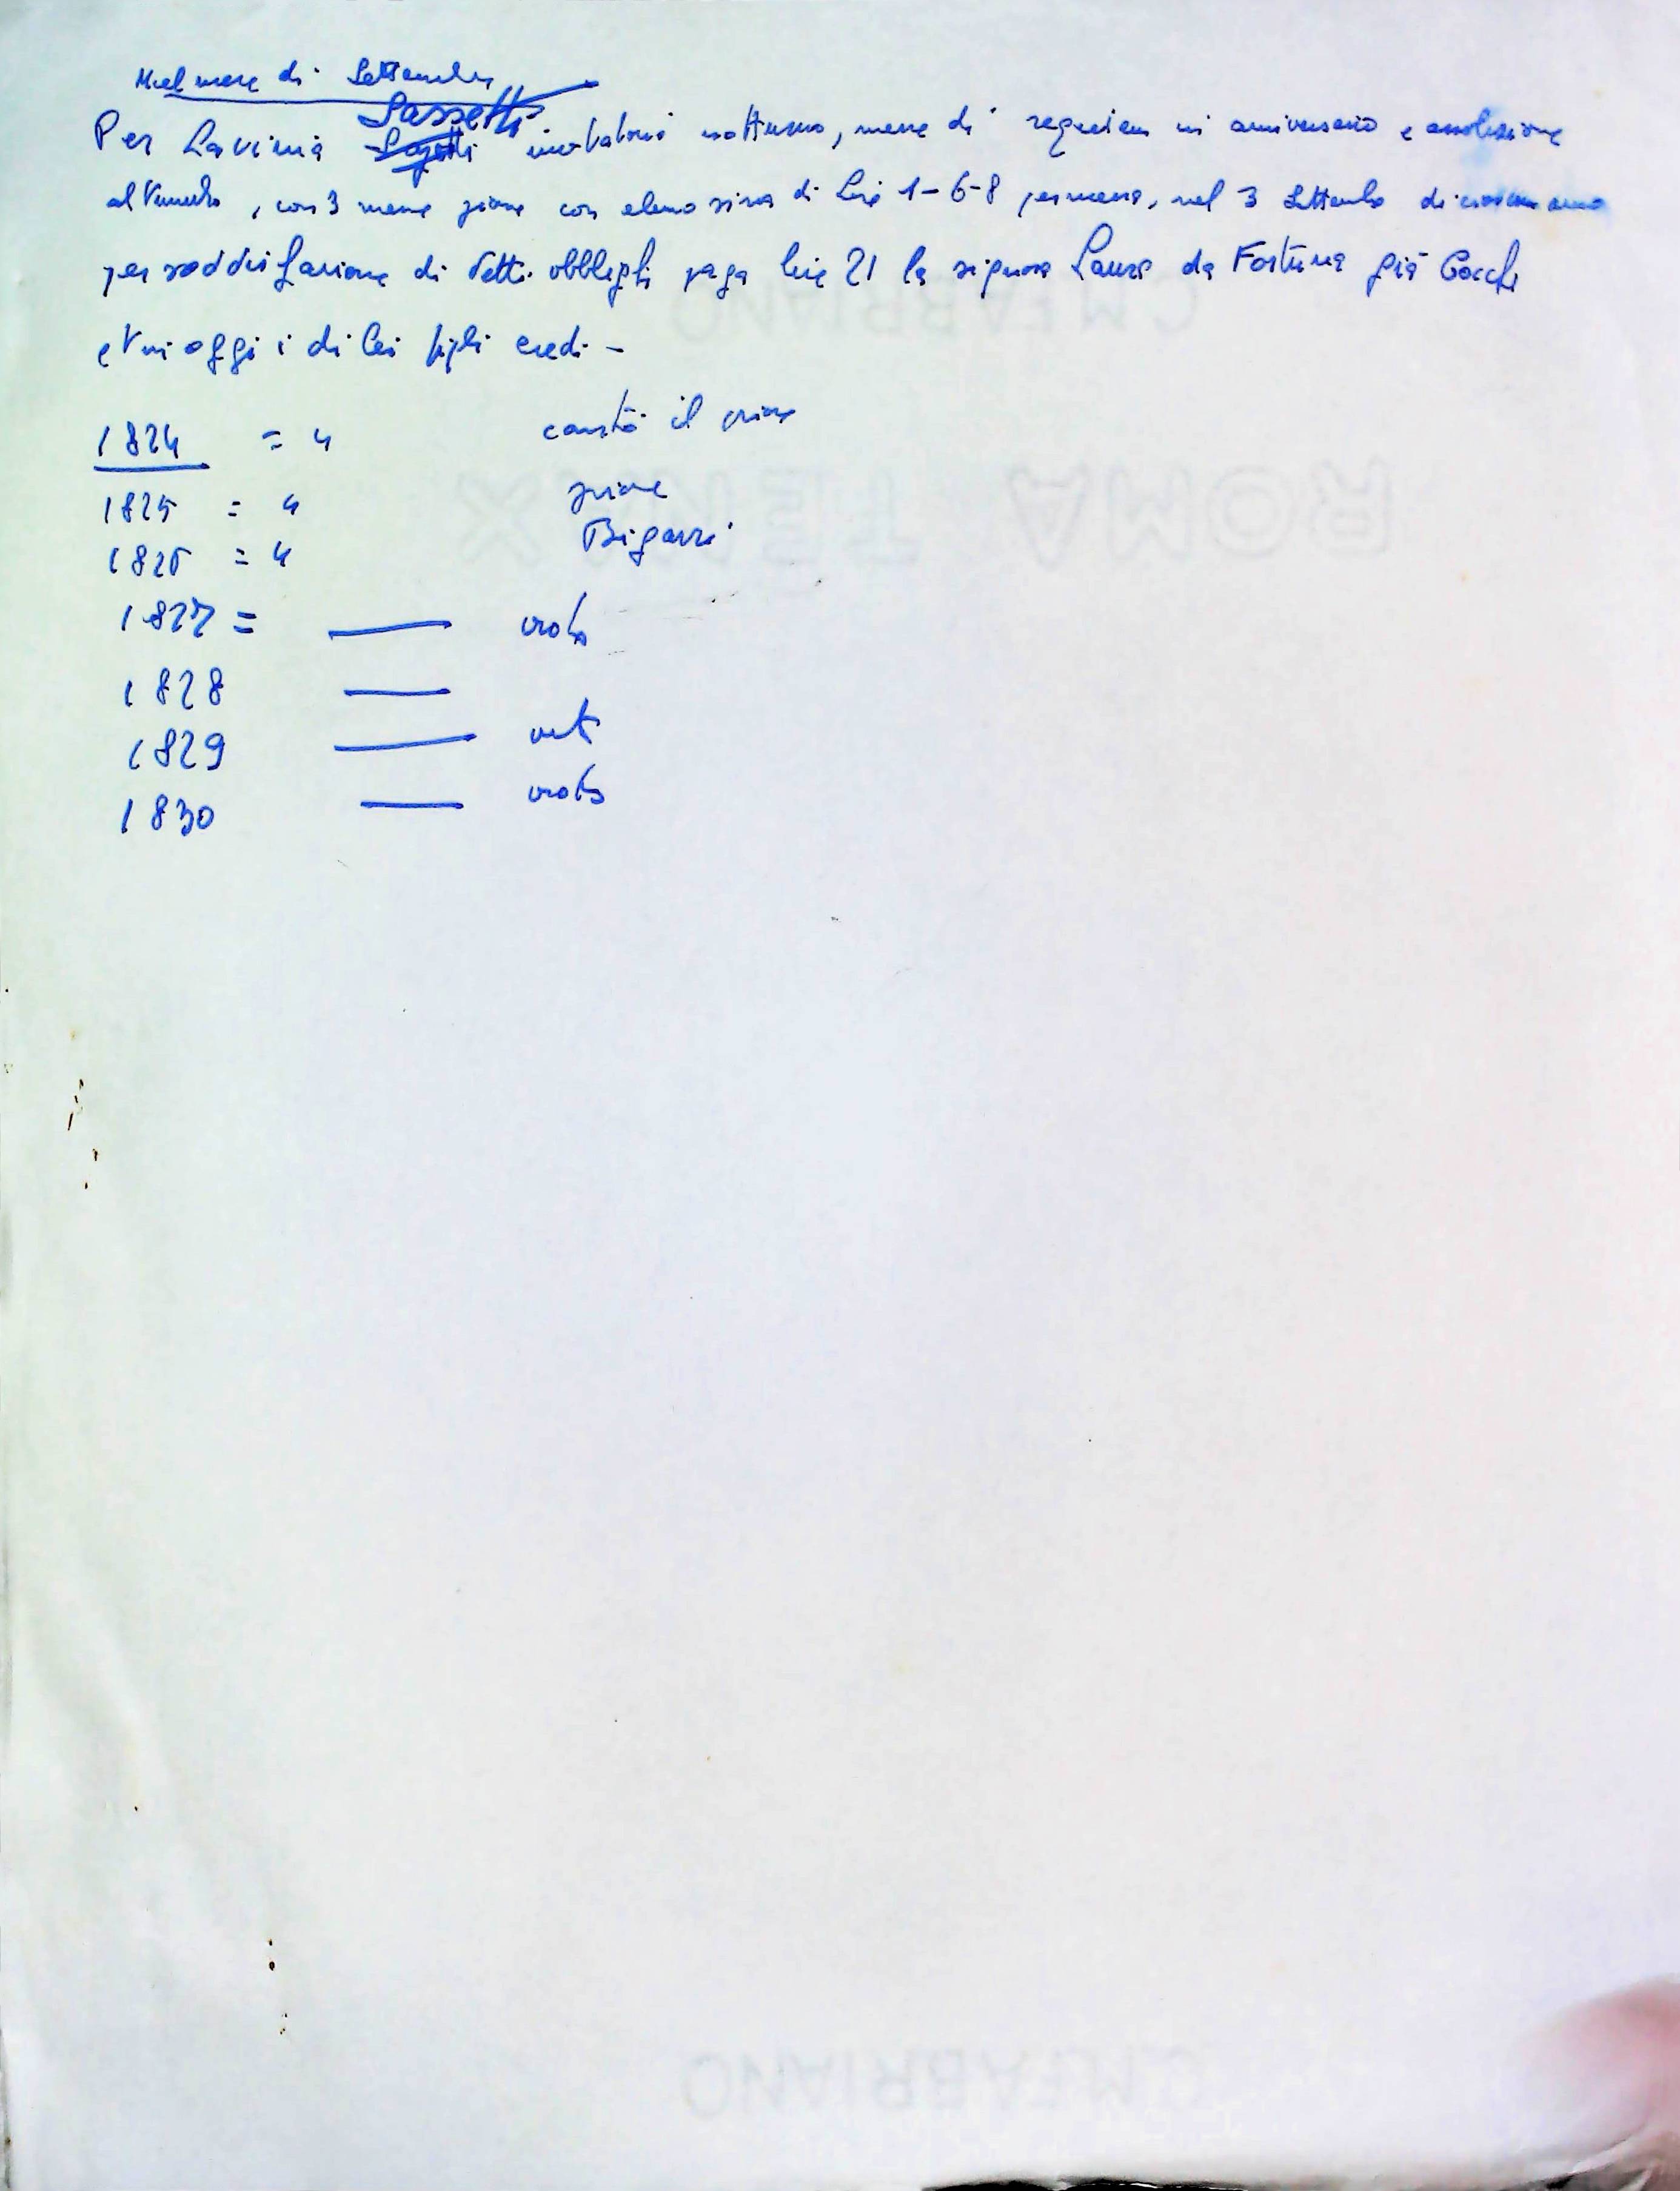 Nel mese di Settembre
Sassetti
Per Lavinia invitatorio notturno, messe di requiem in aniversario e assoluzione
al tumulo, con 3 messe piane con elemosina di Lire 1-6-8 per messa, nel 3 Settembre di ciascun anno
per soddisfazione di detti obblighi paga lire 21 la signora Laura da Fortuna già Cocchi
et in oggi i di lei figli eredi -
1824 = 4 cantò il priore
1825 = 4 priore
1826 = 4 Bigazzi
1827 = — voto
1828 —
1829 — voto
1830 — voto
CM FABRIANO
ROMA TENAX
CM FABRIANO